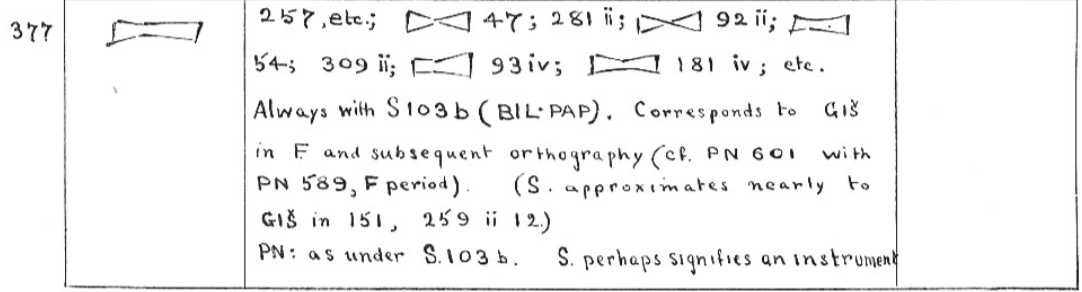 377 257, etc.; 47; 281 ii; 92 ii;
54; 309 ii; 93 iv; 181 iv; etc.
Always with S103b (BIL·PAP). Corresponds to GIŠ
in F and subsequent orthography (cf. PN 601 with
PN 589, F period). (S. approximates nearly to
GIŠ in 151, 259 ii 12.)
PN: as under S.103b. S. perhaps signifies an instrument